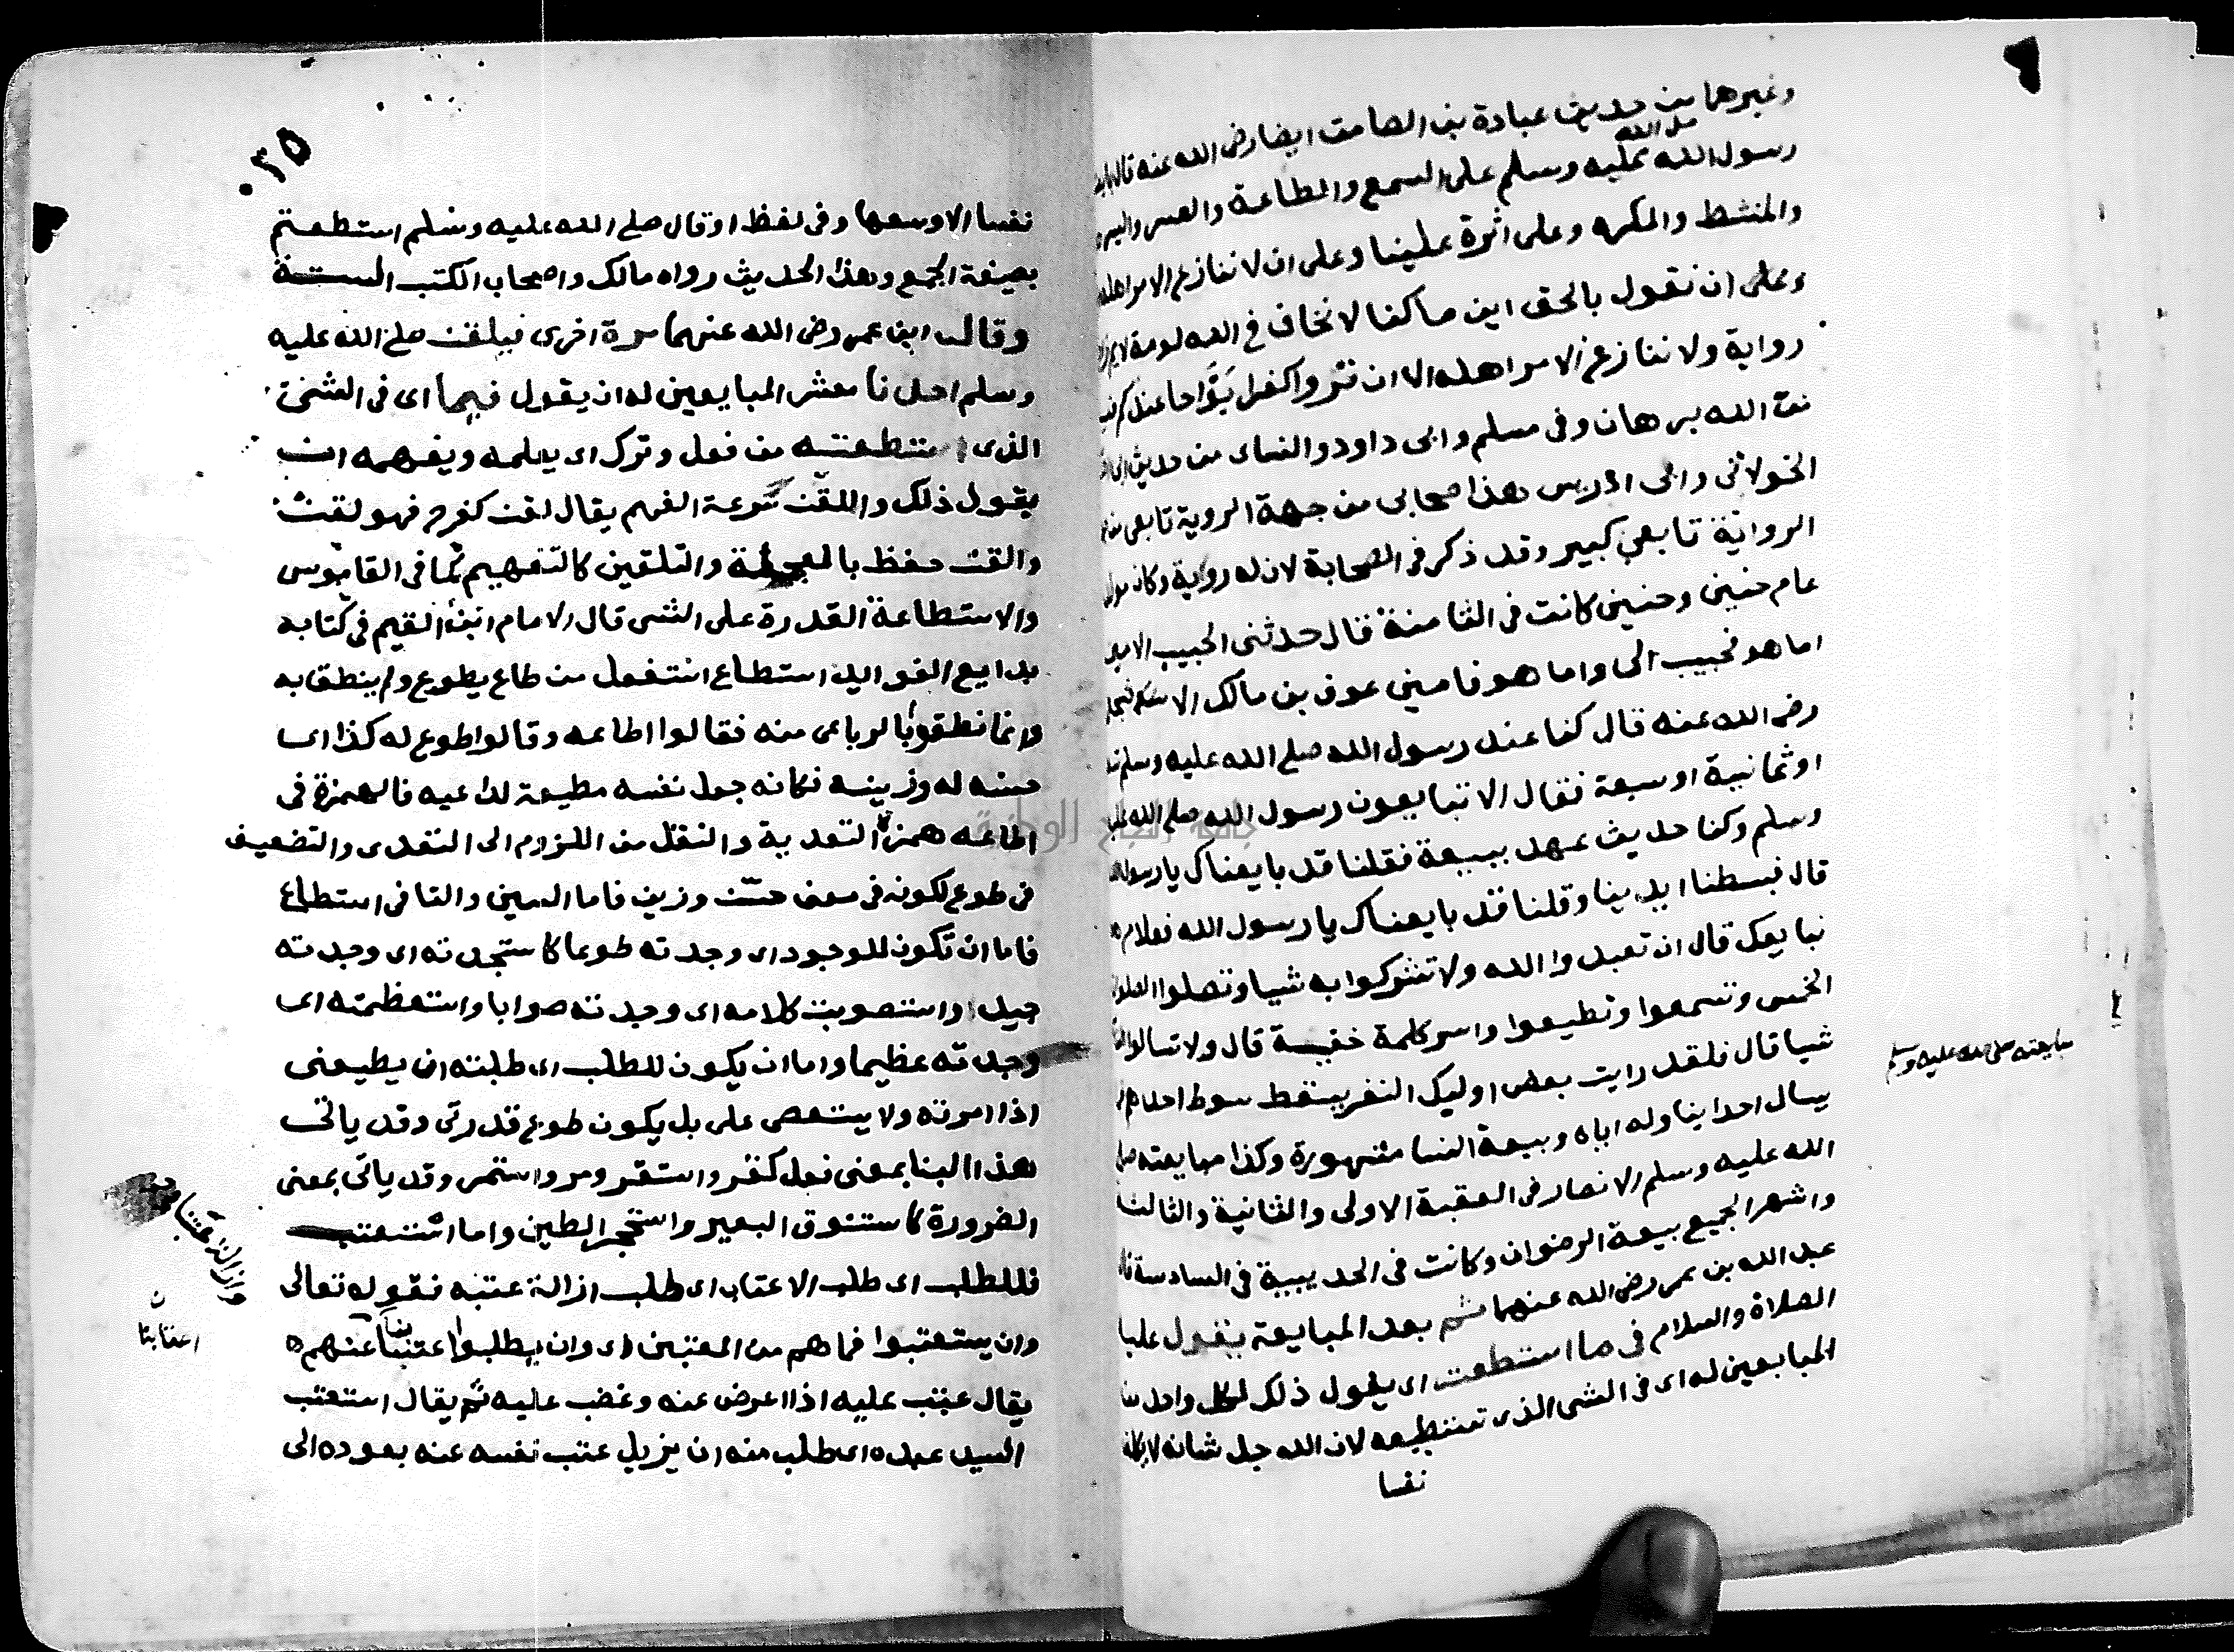 وغيرها من حديث عبادة بن الصامت ايضا رضى الله عنه قال
رسول الله صلى الله عليه وسلم على السمع والطاعة والعسر واليسر
والمنشط والمكره وعلى اثرة علينا وعلى ان لا ننازع الامر اهله
وعلى ان نقول بالحق اين ما كنا لا نخاف في الله لومة لايم
رواية ولا ننازع الامر اهله الا ان تروا كفرا بَوَّاحا عندكم
من الله برهان وفى مسلم وابى داود والنساى من حديث
الخولانى وابى ادريس هذا صحابى من جهة الروية تابعى
الرواية تابعي كبير وقد ذكر فى الصحابة لان له رواية وكان
عام حنين وحنين كانت فى الثامنة قال حدثنى الحبيب
اما هو فحبيب الى واما هو فامين عوف بن مالك
رضى الله عنه قال كنا عند رسول الله صلى الله عليه وسلم
او ثمانية او سبعة فقال الا تبايعون رسول الله صلى الله
وسلم وكنا حديث عهد ببيعة فقلنا قد بايعناك يا رسول
قال فبسطنا ايدينا وقلنا قد بايعناك يا رسول الله فعلام
نبايعك قال ان تعبدوا الله ولا تشركوا به شيا وتصلوا
الخمس وتسمعوا وتطيعوا واسر كلمة خفية قال ولا تسالوا
شيا قال فلقد رايت بعض اوليك النفر يسقط سوط احدهم
يسال احدا يناوله اياه وبيعة النسا مشهورة وكذا مبايعته
الله عليه وسلم الانصار فى العقبة الاولى والثانية والثالثة
واشهر الجميع بيعة الرضوان وكانت فى الحديبية فى السادسة
عبد الله بن عمر رضى الله عنهما ثم بعد المبايعة يقول
الصلاة والسلام فى ما استطعت اى يقول ذلك لكل واحد
المبايعين له اى فى الشى الذى تستطيعه لان الله جل شانه
نفسا
مبايعته صلى الله عليه وسلم
٣٥
نفسا الا وسعها وفى لفظ او قال صلى الله عليه وسلم استطعتم
بصيغة الجمع وهذا الحديث رواه مالك واصحاب الكتب الستة
وقال ابن عمر رضى الله عنهما مرة اخرى فيلقن صلى الله عليه
وسلم احدنا معشر المبايعين له ان يقول فيما اى فى الشى
الذى استطعته من فعل وترك اى يعلمه ويفهمه ان
يقول ذلك واللقن سرعة الفهم يقال لقن كفرح فهو لقن
حفظ بالعجلة والتلقين كالتفهيم كما فى القاموس
والاستطاعة القدرة على الشى قال الامام ابن القيم فى كتابه
بدايع الفوايد استطاع استفعل من طاع يطوع ولم ينطق به
وانما نطقوا بالرباعى منه فقالوا اطاعه وقالوا طوع له كذا اى
حسنه له وزينه فكانه جعل نفسه مطيعة لداعيه فالهمزة فى
اطاعه همزة التعدية والنقل من اللزوم الى التعدى والتضعيف
فى طوع لكونه فى معنى حسّن وزين فاما السين والتا فى استطاع
فاما ان تكون للوجود اى وجدته طوعا كاستجدته اى وجدته
جيدا واستصوبت كلامه اى وجدته صوابا واستعظمته اى
وجدته عظيما واما ان يكون للطلب اى طلبته ان يطيعنى
اذا امرته ولا يستعصى على بل يكون طوع قدرتى وقد ياتى
هذا البنا بمعنى فعل كقر واستقر ومر واستمر وقد ياتى بمعنى
الضرورة كاستنوق البعير واستحجر الطين واما استعتب
فللطلب اى طلب الاعتاب اى طلب ازالة عتبه فقوله تعالى
وان يستعتبوا فما هم من المعتبين اى وان يطلبوا عنهم
يقال عتب عليه اذا اعرض عنه وغضب عليه ثم يقال استعتب
السيد عبده اى طلب منه ان يزيل عتب نفسه عنه بعوده الى
جامعة النجاح الوطنية